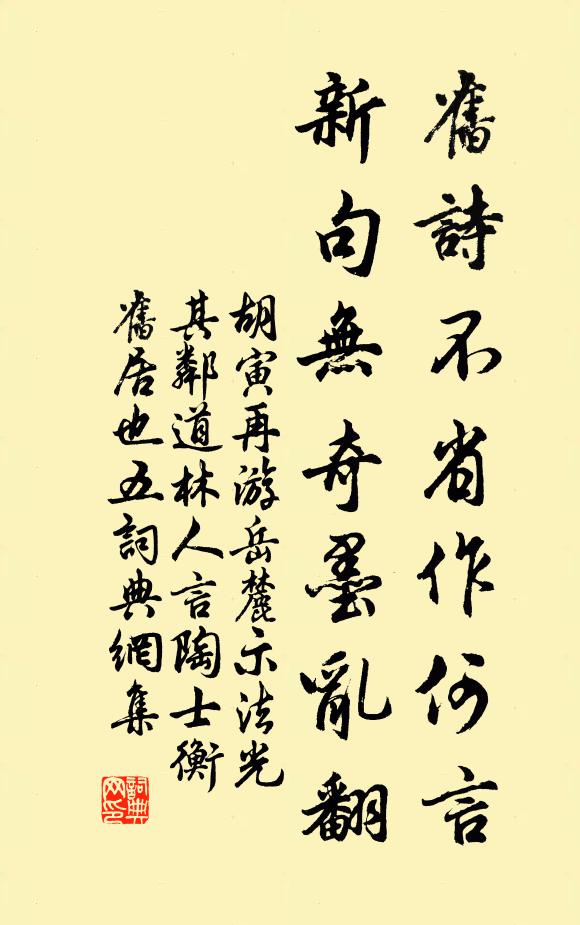 舊詩不省作何言
新句無奇墨亂翻
胡寅再游岳麓示法光
其鄰道林人言陶士衡
舊居也五詞典網集
詞典
网印